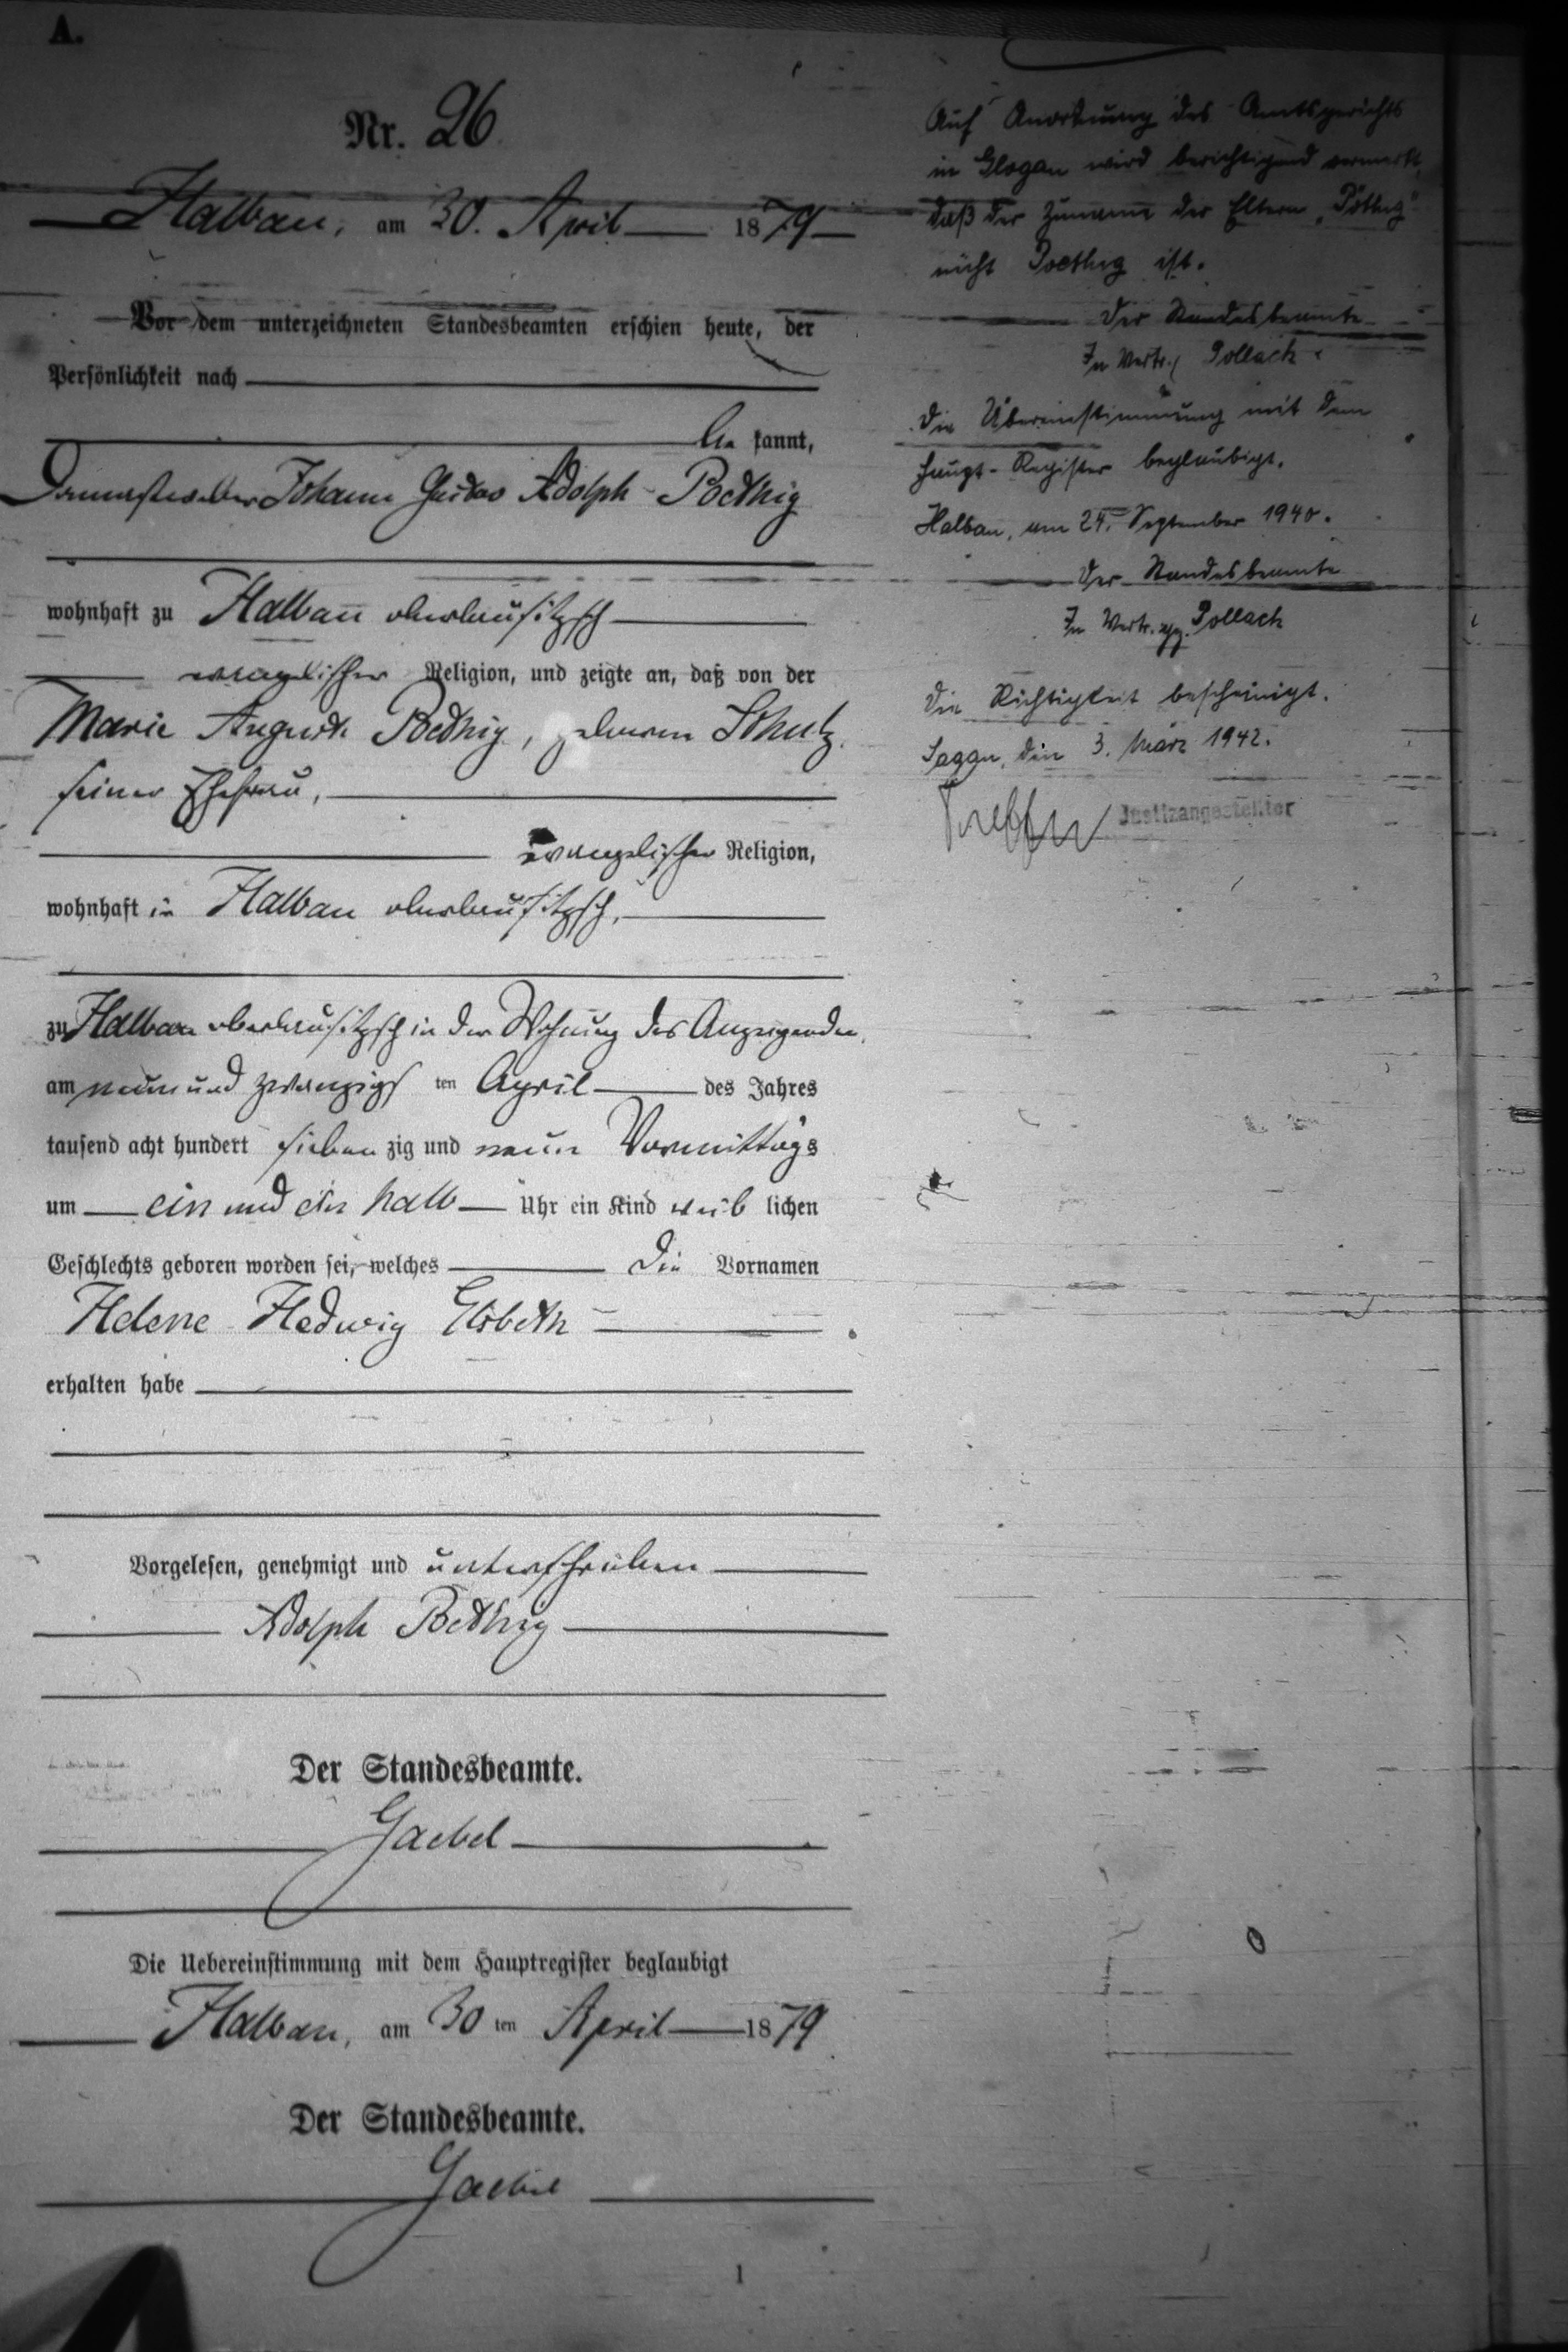 A.
Nr. 26
Halbau, am 30. April 1879
Vor dem unterzeichneten Standesbeamten erschien heute, der
Persönlichkeit nach
be kannt,
Johann Gustav Adolph Poethig
wohnhaft zu Halbau oberlausitzsch
evangelischer Religion, und zeigte an, daß von der
Marie Auguste Poethig, geborenen Schulz
seiner Ehefrau,
evangelischer Religion,
wohnhaft in Halbau oberlausitzsch,
zu Halbau oberlausitzsch in der Wohnung des Anzeigenden,
am neun und zwanzigs ten April des Jahres
tausend acht hundert sieben zig und neun Vormittags
um ein und ein halb Uhr ein Kind weib lichen
Geschlechts geboren worden sei, welches die Vornamen
Helene Hedwig Elsbeth
erhalten habe
Vorgelesen, genehmigt und unterschrieben
Adolph Poethig
Der Standesbeamte.
Gaebel
Die Uebereinstimmung mit dem Hauptregister beglaubigt
Halbau, am 30 ten April 1879
Der Standesbeamte.
Gaebel
1
Auf Anordnung des Amtsgerichts
in Glogau wird berichtigend vermerkt,
daß der Zuname der Eltern „Pöthig"
nicht Poethig ist.
Der Standesbeamte
In Vertr. Pollack.
Die Übereinstimmung mit dem
Haupt-Register beglaubigt.
Halbau, am 24. September 1940.
Der Standesbeamte
In Vertr. gez. Pollack
Die Richtigkeit bescheinigt.
Sagan, den 3. März 1942.
Justizangestellter